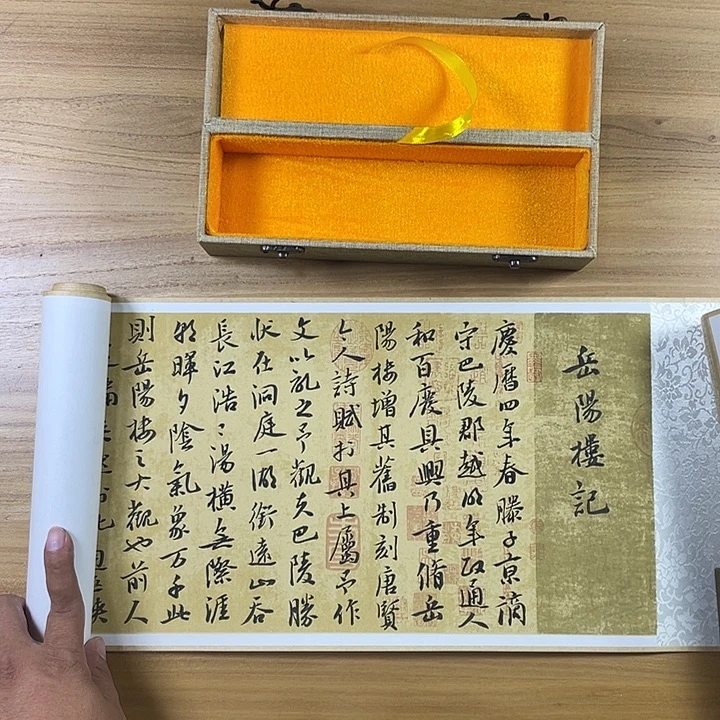 岳陽樓記
慶曆四年春滕子京謫
守巴陵郡越明年政通人
和百廢具興乃重脩岳
陽樓增其舊制刻唐賢
今人詩賦於其上屬予作
文以記之予觀夫巴陵勝
狀在洞庭一湖銜遠山吞
長江浩〻湯橫無際涯
朝暉夕陰氣象万千此
則岳陽樓之大觀也前人
通巫峽